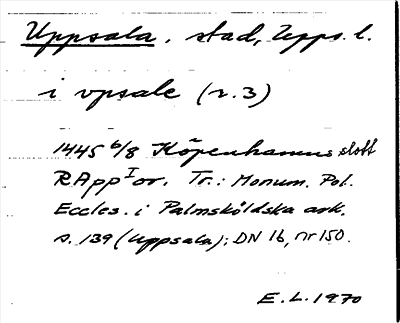 Uppsala. stad, Upps. l.
i vpsale (r. 3)
1445 6/8 Köpenhamns slott
RApp I or. Tr.: Monum. Pol.
Eccles. i Palmsköldska ark.
s. 139 (Uppsala); DN 16, nr 150.
E. L. 1970